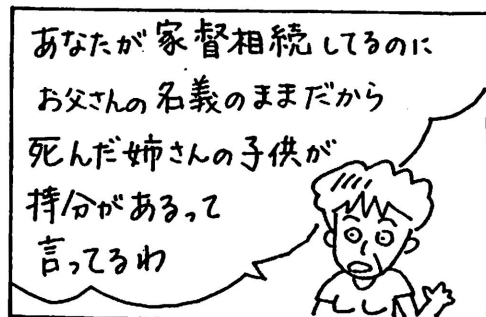 あなたが家督相続してるのに
お父さんの名義のままだから
死んだ姉さんの子供が
持分があるって
言ってるわ